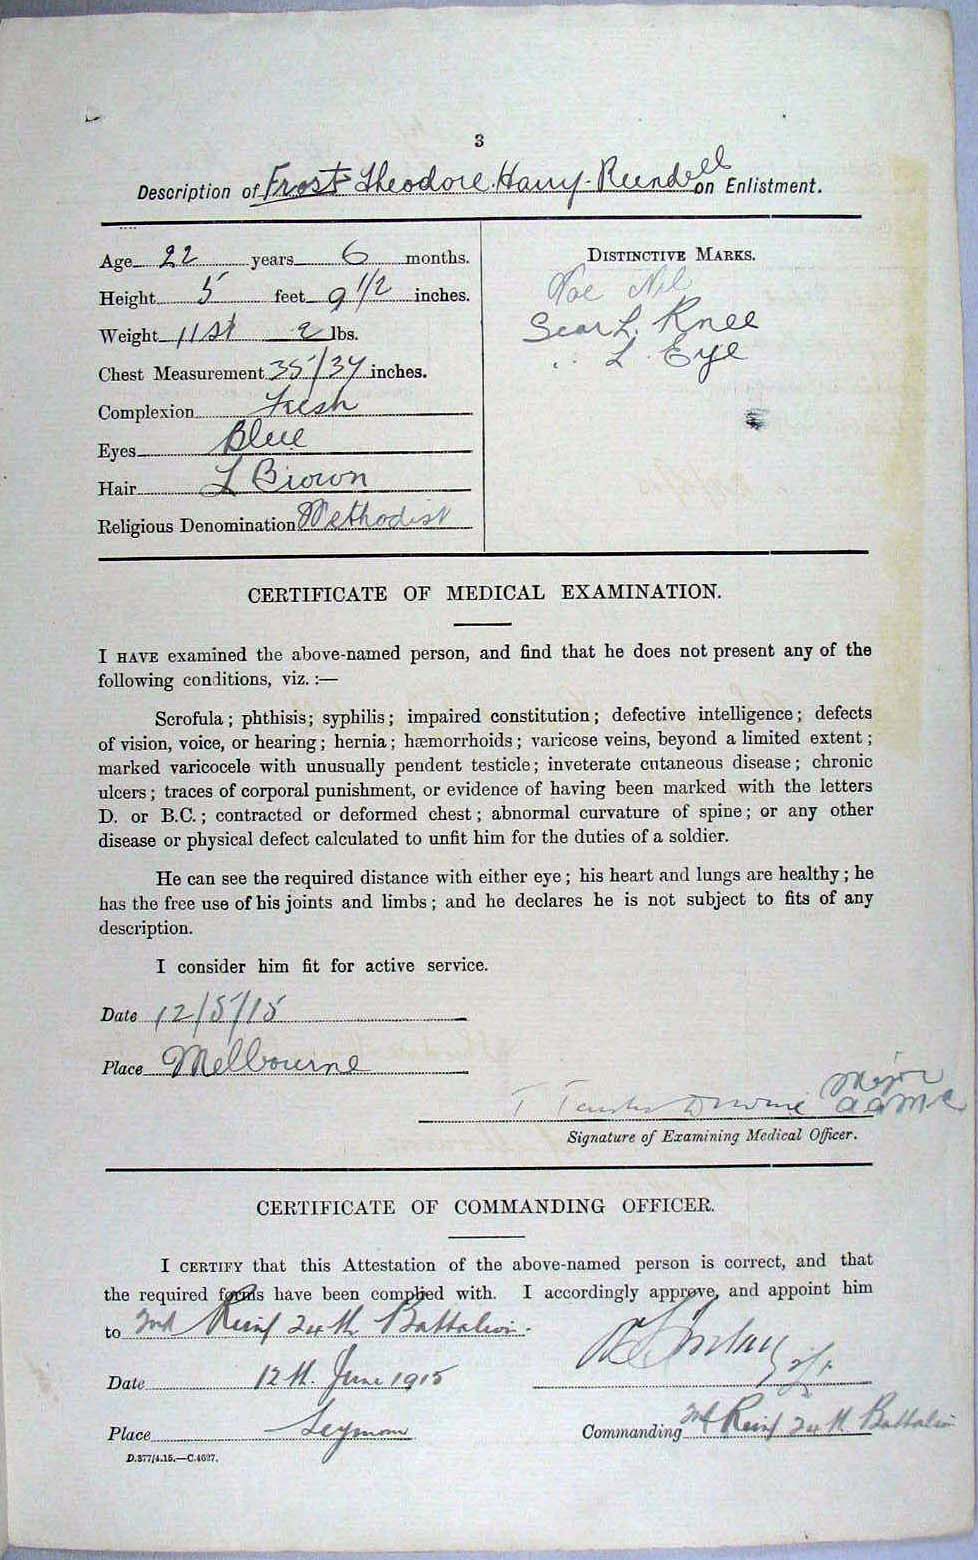 3
Description of Frost Theodore Harry Rundell on Enlistment.
Age 22 years 6 months.
Height 5 feet 9 1/2 inches.
Weight 11 St 2 lbs.
Chest Measurement 35/37 inches.
Complexion Fresh
Eyes Blue
Hair L Brown
Religious Denomination Methodist
DISTINCTIVE MARKS.
Vac Nil
Scar L. Knee
" L. Eye
CERTIFICATE OF MEDICAL EXAMINATION.
I HAVE examined the above-named person, and find that he does not present any of the
following conditions, viz. :—
Scrofula; phthisis; syphilis; impaired constitution; defective intelligence; defects
of vision, voice, or hearing; hernia; hæmorrhoids; varicose veins, beyond a limited extent;
marked varicocele with unusually pendent testicle; inveterate cutaneous disease; chronic
ulcers; traces of corporal punishment, or evidence of having been marked with the letters
D. or B.C.; contracted or deformed chest; abnormal curvature of spine; or any other
disease or physical defect calculated to unfit him for the duties of a soldier.
He can see the required distance with either eye; his heart and lungs are healthy; he
has the free use of his joints and limbs; and he declares he is not subject to fits of any
description.
I consider him fit for active service.
Date 12/5/15
Place Melbourne
Major
AAMC
Signature of Examining Medical Officer.
CERTIFICATE OF COMMANDING OFFICER.
I CERTIFY that this Attestation of the above-named person is correct, and that
the required forms have been complied with. I accordingly approve, and appoint him
to 2nd Reinf 24th Battalion.
Date 12th. June 1915
Place Seymour
Commanding 2nd Reinf 24th Battalion
D.377/4.15.—C.4027.